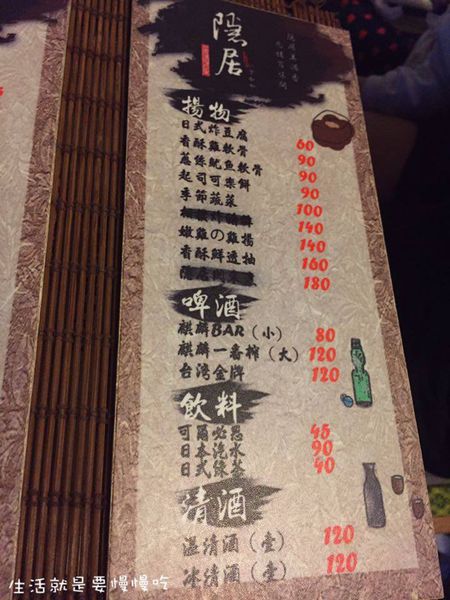 隱居
揚物
日式炸豆腐 60
香酥雞軟骨 90
蔥絲魷魚軟骨 90
起司可樂餅 90
季節蔬菜 100
140
嫩雞の雞揚 140
香酥鮮透抽 160
180
啤酒
麒麟BAR（小） 80
麒麟一番榨（大） 120
台灣金牌 120
飲料
可爾必思 45
日本汽水 90
日式綠茶 40
清酒
溫清酒（壺） 120
冰清酒（壺） 120
生活就是要慢慢吃